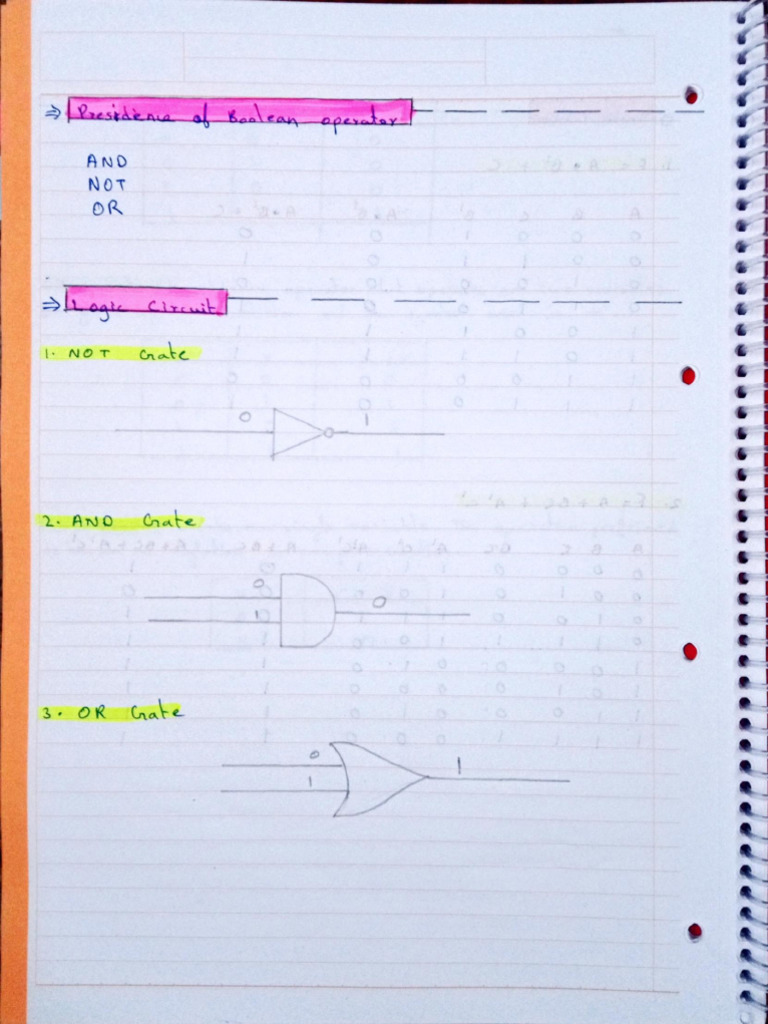 ⇒ Presidence of Boolean operator
AND
NOT
OR
⇒ Logic Circuit
1. NOT Gate
0 1
2. AND Gate
0
1 0
3. OR Gate
0 1
1